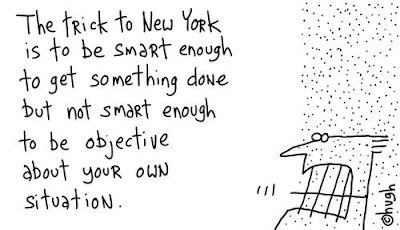 The trick to New York
is to be smart enough
to get something done
but not smart enough
to be objective
about your own
situation.
©hugh